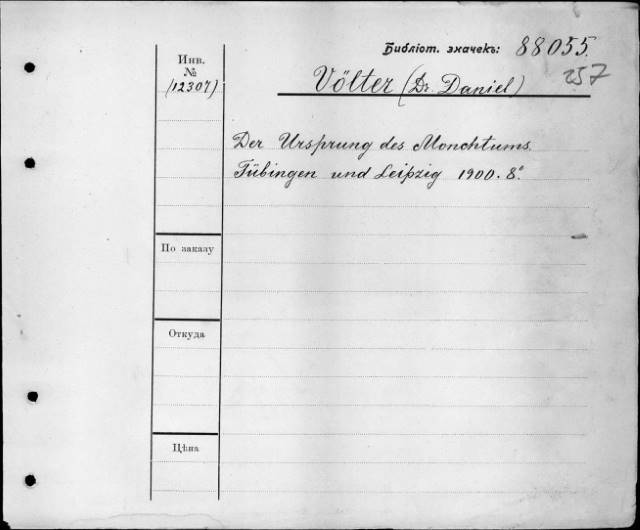 Библіот. значекъ: 88055.
257
Инв.
№
(12307)
Völter (Dr. Daniel)
Der Ursprung des Monchtums.
Tübingen und Leipzig 1900. 8°.
По заказу
Откуда
Цѣна